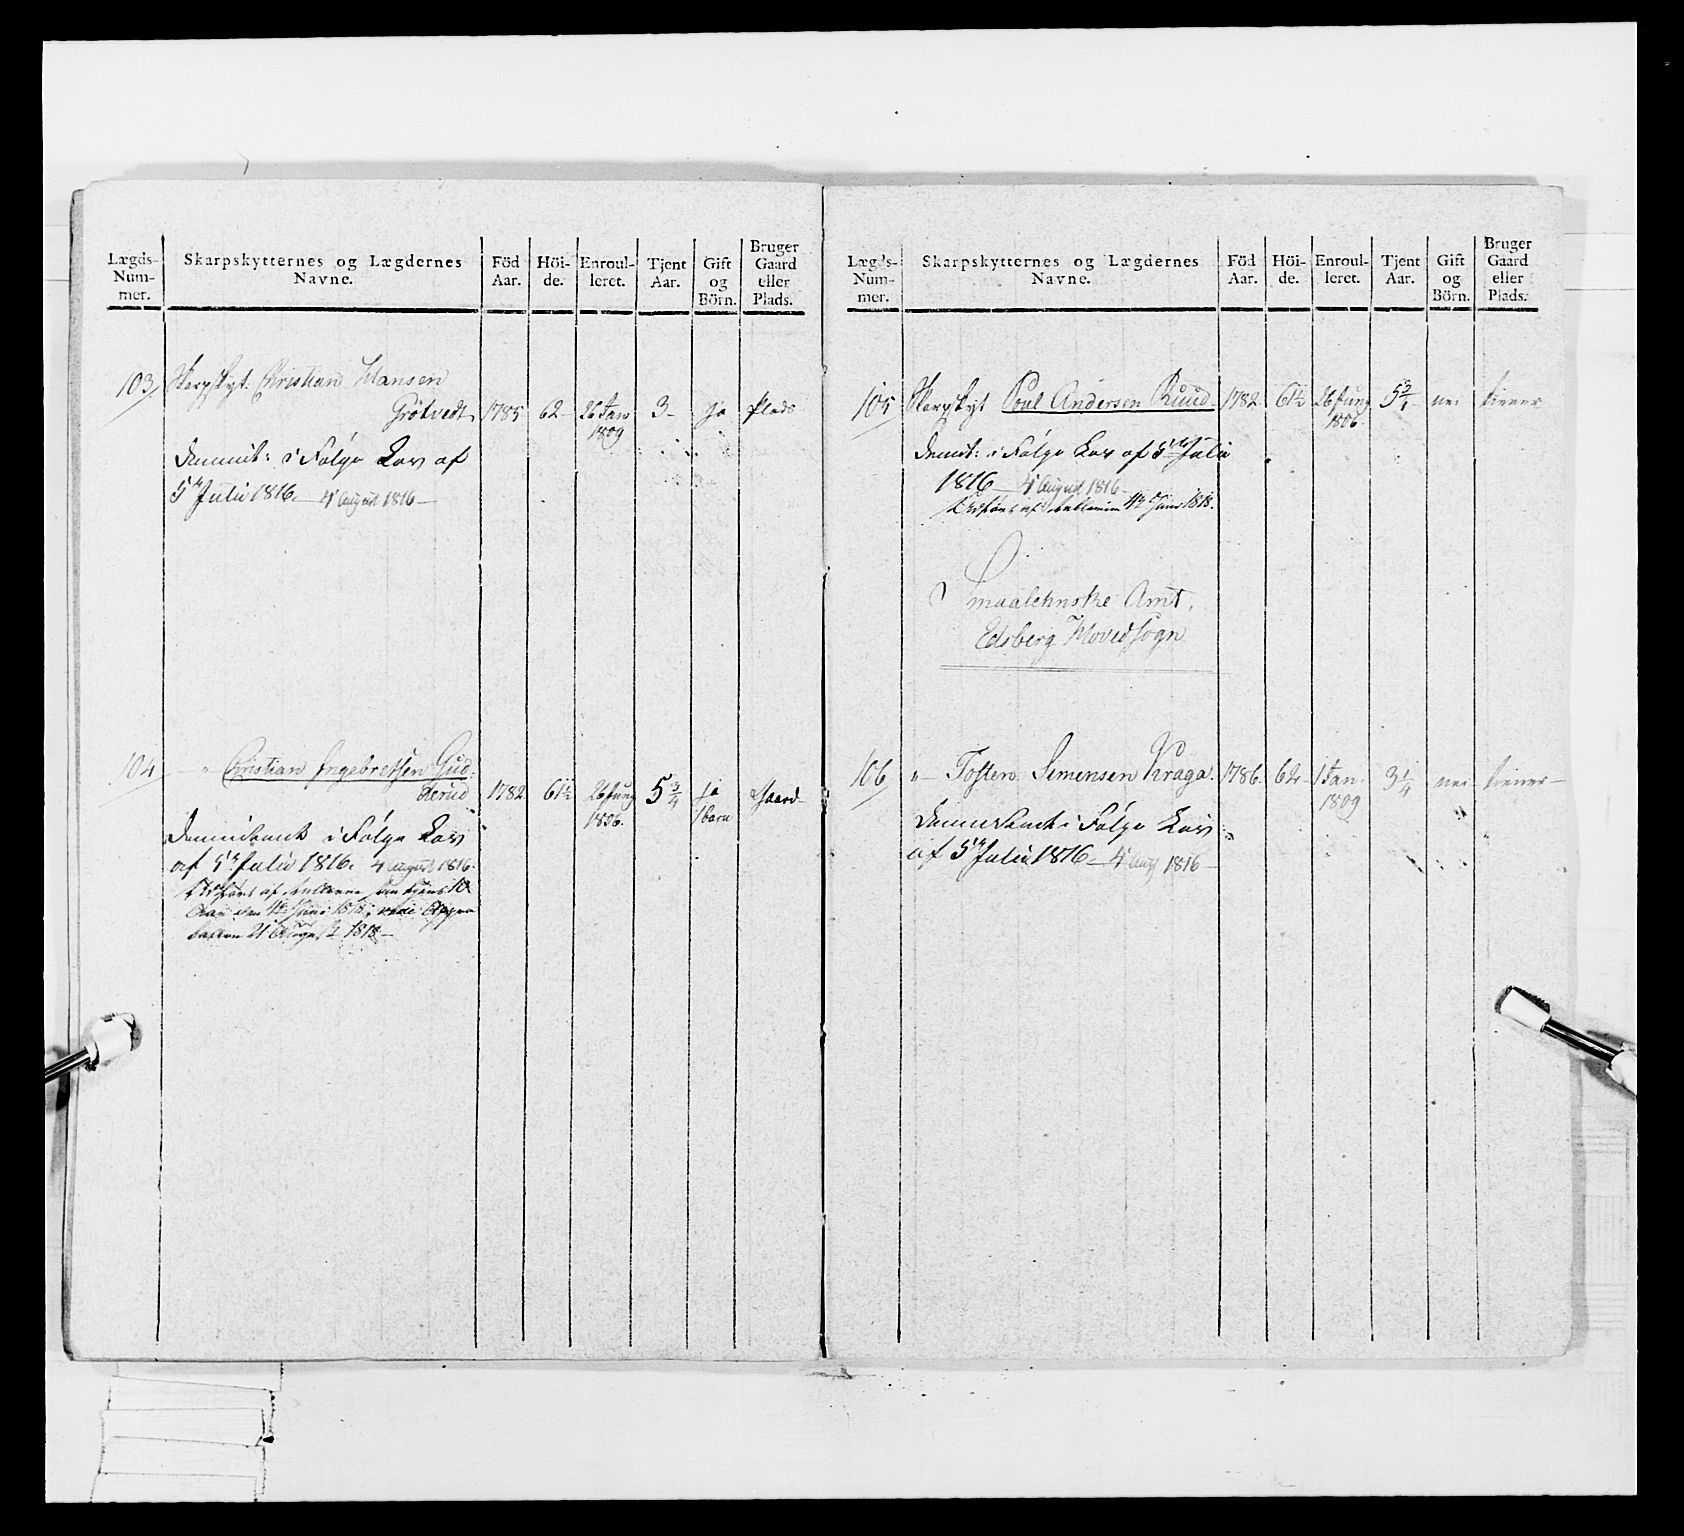 Lægds-Num-mer. Skarpskytternes og Lægdernes Navne. Föd Aar. Höi-de. Enroul-leret. Tjent Aar. Gift og Börn. Bruger Gaard eller Plads.
103 Skarpskyt: Christian Hansen
Grötvedt 1785 62 26 Jan 1809 3 ja Plads
Demit: i Følge Lov af
5te Julii 1816. 4 August 1816
104 " Christian Ingebretsen Gud-
derud 1782 61½ 26 Jung 1806. 5¾ ja 1 barn Gaard
i Følge Lov
af 5te Julii 1816. 4 August 1816.
1818
August 1818
Lægds-Num-mer. Skarpskytternes og Lægdernes Navne. Föd Aar. Höi-de. Enroul-leret. Tjent Aar. Gift og Börn. Bruger Gaard eller Plads.
105 Skarpskyt Poul Andersen Ruud 1782 61½ 26 Jung 1806. nei tiener
Demit: i Følge Lov af 5te Julii
1816 4 August 1816
Juni 1818.
Smaalehnske Amt,
Edsberg Hovedsogn
106 " Tosten Simensen Kraga. 1786. 62 1 Jan. 1809 3¼ nei tiener
i Følge Lov
af 5te Julii 1816 4 Augt 1816